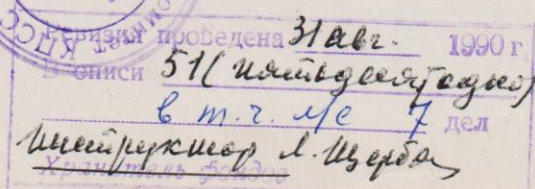 Ревизия проведена 31 авг. 1990 г
В описи 51 (пятьдесят одно)
в т.ч. л/с 7 дел
Инструктор Л. Щерба
Хранитель фондов
КПСС